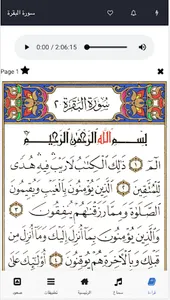 سورة البقرة
0:00 / 2:06:15
Page 1
سُورَةُ البَقَرَةِ ٢
بِسْمِ اللَّهِ الرَّحْمَٰنِ الرَّحِيمِ
الٓمٓ ۝١ ذَٰلِكَ ٱلْكِتَٰبُ لَا رَيْبَ ۛ فِيهِ ۛ هُدًى
لِّلْمُتَّقِينَ ۝٢ ٱلَّذِينَ يُؤْمِنُونَ بِٱلْغَيْبِ وَيُقِيمُونَ
ٱلصَّلَوٰةَ وَمِمَّا رَزَقْنَٰهُمْ يُنفِقُونَ ۝٣
وَٱلَّذِينَ يُؤْمِنُونَ بِمَآ أُنزِلَ إِلَيْكَ وَمَآ أُنزِلَ مِن
قَبْلِكَ وَبِٱلْءَاخِرَةِ هُمْ يُوقِنُونَ ۝٤ أُو۟لَٰٓئِكَ عَلَىٰ
قراءة
سماع
الرئيسية
تطبيقات
صعود